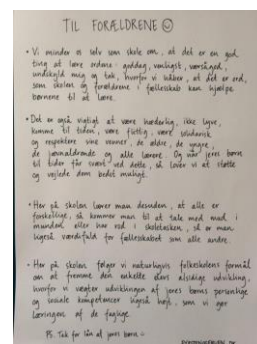 TIL FORÆLDRENE ☺
• Vi minder os selv som skole om, at det er en god
ting at lære ordene: goddag, venligst, værsågod,
undskyld mig og tak, hvorfor vi håber, at det er ord,
som skolen og forældrene i fællesskab kan hjælpe
børnene til at lære.
• Det er også vigtigt at være hæderlig, ikke lyve,
komme til tiden, være flittig, være solidarisk
og respektere sine venner, de ældre, de yngre,
de jævnaldrende og alle lærere. Og når jeres børn
til tider får svært ved dette, så lover vi at støtte
og vejlede dem bedst muligt.
• Her på skolen lærer man desuden, at alle er
forskellige, så kommer man til at tale med mad i
munden eller har rod i skoletasken, så er man
ligeså værdifuld for fællesskabet som alle andre.
• Her på skolen følger vi naturligvis folkeskolens formål
om at fremme den enkelte elevs alsidige udvikling,
hvorfor vi vægter udviklingen af jeres børns personlige
og sociale kompetencer ligeså højt, som vi gør
læringen af de faglige.
PS. Tak for lån af jeres børn ☺